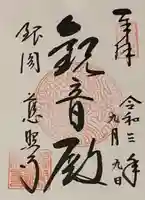 奉拝
令和三年
九月九日
観音殿
銀閣
慈照寺